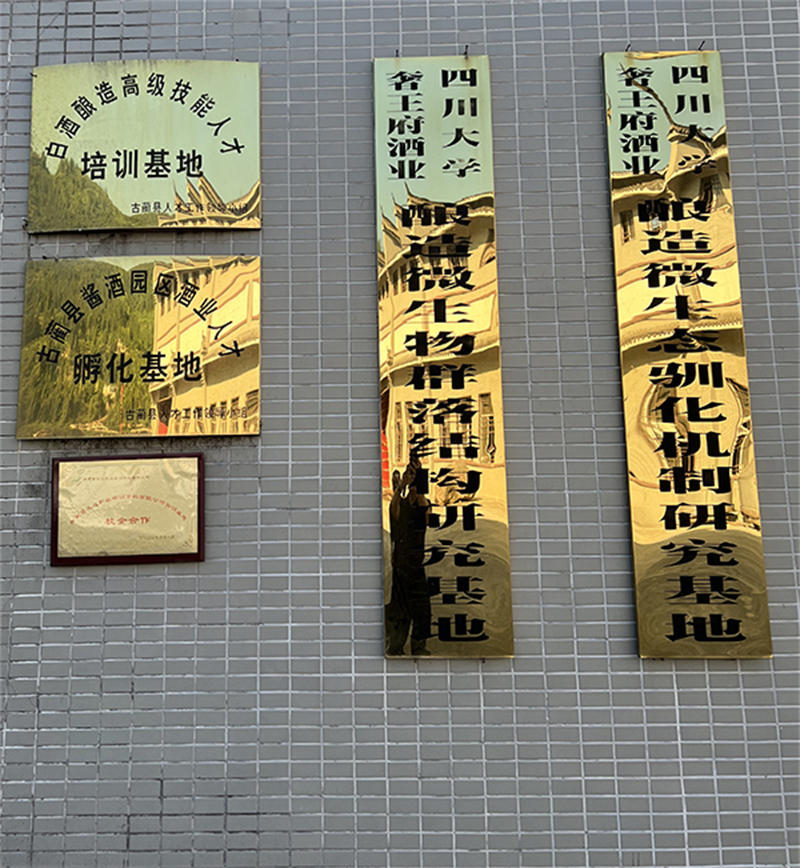 白酒酿造高级技能人才
培训基地
古蔺县人才工作领导小组
古蔺县酱酒园区酒业人才
孵化基地
古蔺县人才工作领导小组
校企合作
四川大学
奢王府酒业
酿造微生物群落结构研究基地
四川大学
奢王府酒业
酿造微生态驯化机制研究基地